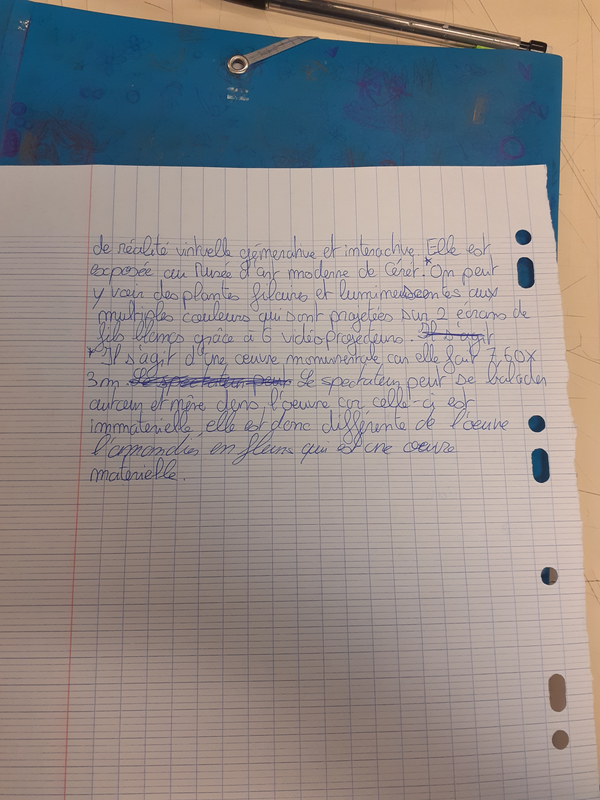 de réalité virtuelle générative et interactive. Elle est
exposée au Musée d'art moderne de Céret.* On peut
y voir des plantes filaires et luminescentes aux
multiples couleurs qui sont projetées sur 2 écrans de
fils blancs grâce à 6 vidéoprojecteurs. Il s'agit
* Il s'agit d'une œuvre monumentale car elle fait 7,60x
3m. Le spectateur peut Le spectateur peut se balader
autour et même dans l'oeuvre car celle-ci est
immatérielle, elle est donc différente de l'oeuvre
l'amandier en fleurs qui est une oeuvre
matérielle.